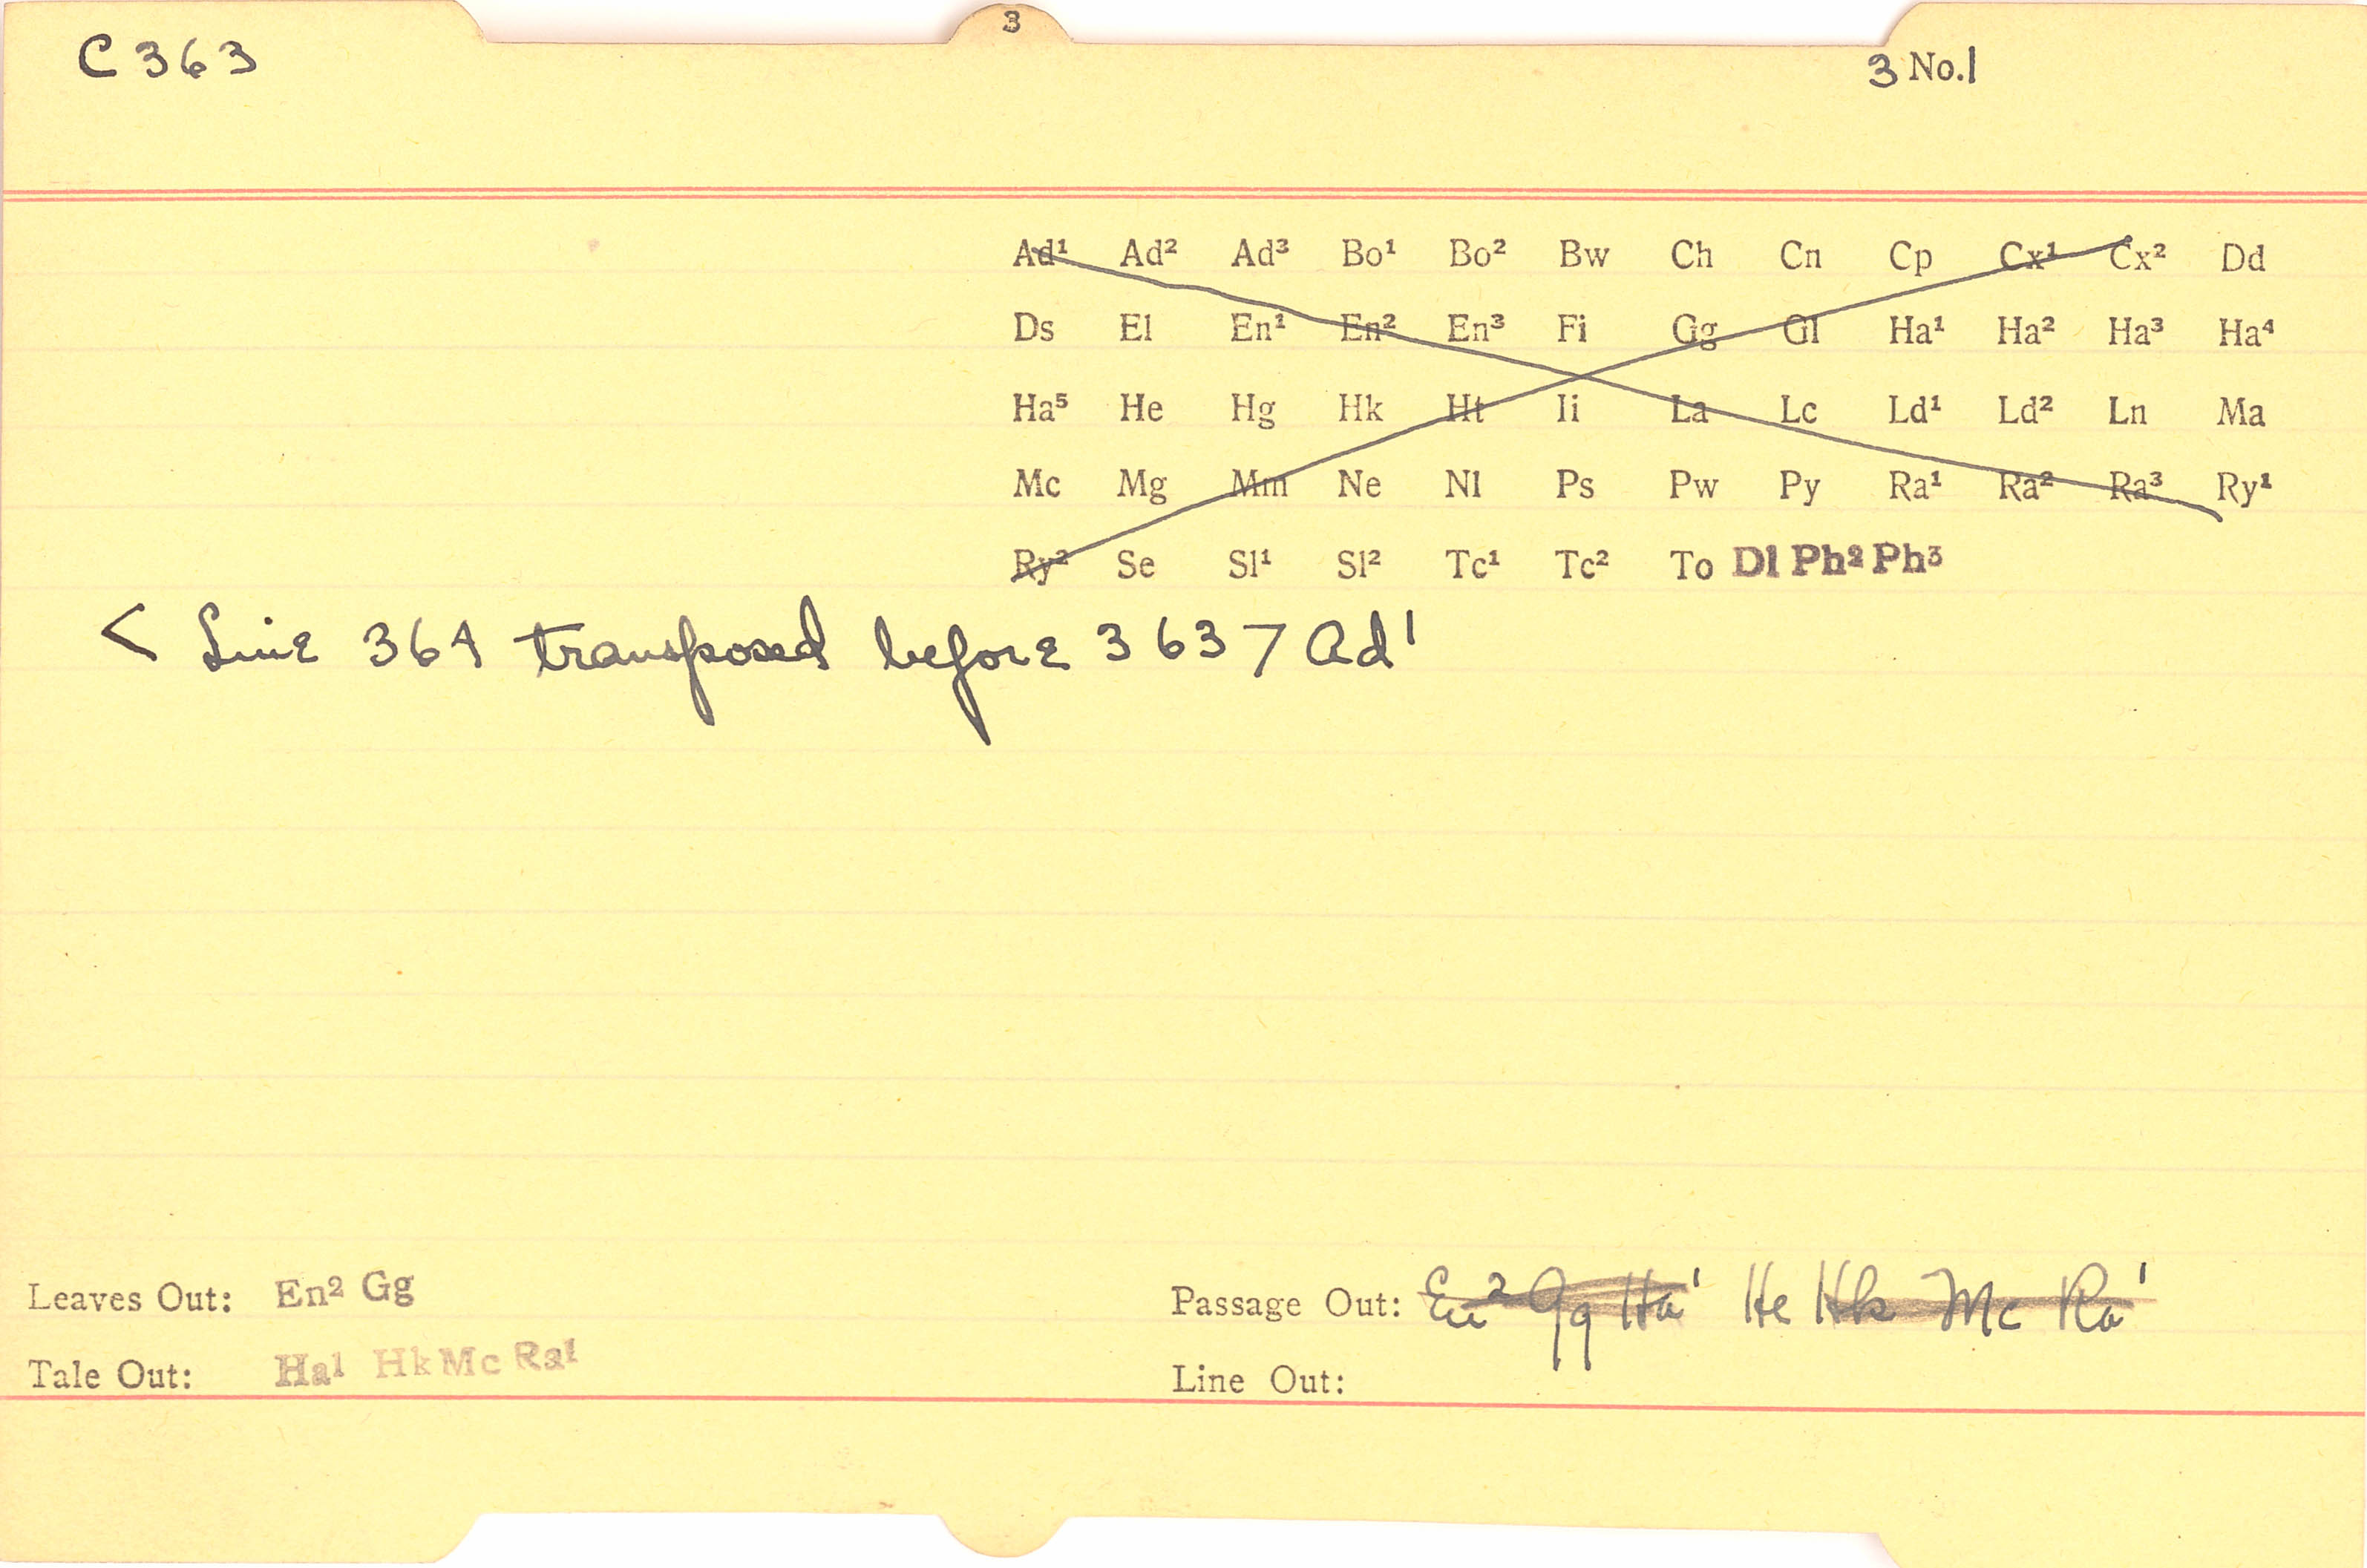 3
C 363
3 No. 1
Ad¹ Ad² Ad³ Bo¹ Bo² Bw Ch Cn Cp Cx¹ Cx² Dd
Ds El En¹ En² En³ Fi Gg Gl Ha¹ Ha² Ha³ Ha⁴
Ha⁵ He Hg Hk Ht Ii La Lc Ld¹ Ld² Ln Ma
Mc Mg Mm Ne Nl Ps Pw Py Ra¹ Ra² Ra³ Ry¹
Ry² Se Sl¹ Sl² Tc¹ Tc² To Dl Ph² Ph³
< Line 364 transposed before 363 > Ad¹
Leaves Out: En² Gg
Passage Out: En² Gg Ha¹ He Hk Mc Ra¹
Tale Out: Ha¹ Hk Mc Ra¹
Line Out: